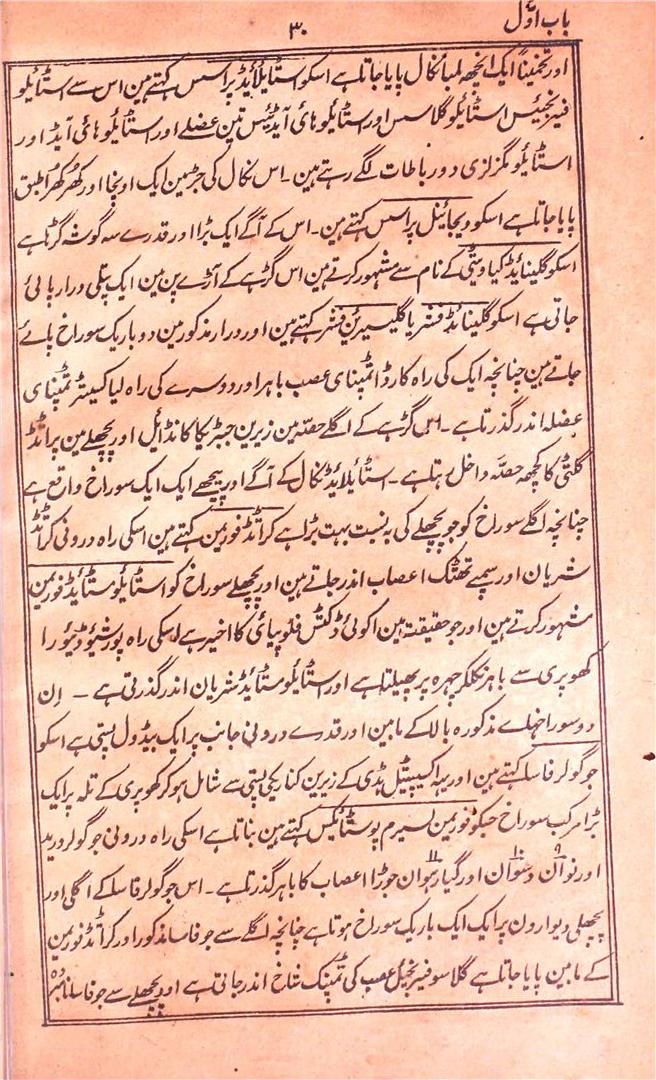 باب اوّل
۳۰
اور تخمیناً ایک انچھ لمبا نکال پایا جاتا ہے اسکو اسٹایلائیڈ پراسس کہتے ہین اس سے اسٹائیلو
فیرنجیئس اسٹائیلو گلاسس اور سٹائیلو ہائی آیڈیئس تین عضلے اور اسٹائیلو ہائی آیڈ اور
اسٹائیلو مگزلری دو رباطات لگے رہتے ہین ۔ اس نکال کی جڑ مین ایک اونچا اور کھُرکھُرا طبق
پایا جاتا ہے اسکو ویجاینل پراسس کہتے ہین ۔ اس کے آگے ایک بڑا اور قدرے سہ گوشہ گڑہا ہے
اسکو گلینایڈ کیاویٹی کے نام سے مشہور کرتے مین اس گڑہے کے آڑے پن مین ایک پتلی درار پائی
جاتی ہے اسکو گلینائڈ فشر یا گلیسیرین فشر کہتے ہین اور درار مذکور مین دو باریک سوراخ پائے
جاتے ہین چنانچہ ایک کی راہ کارڈا ٹمپنای عصب باہر اور دوسرے کی راہ لیاکسیٹر ٹمپنای
عضلہ اندر گذرتا ہے ۔ اس گڑہے کے اگلے حصّہ مین زیرین جبڑیکا کانڈایل اور پچھلے مین پراٹڈ
گلٹی کا کچھہ حصّہ داخل رہتا ہے ۔ سٹایلائیڈ نکال کے آگے اور پیچھے ایک ایک سوراخ واقع ہے
چنانچہ اگلے سوراخ کو جو پچھلے کی بہ نسبت بہت بڑا ہے کراٹڈ فورمین کہتے ہین اسکی راہ درونی کراٹڈ
شریان اور سمپے تھٹک اعصاب اندر جاتے ہین اور پچھلے سوراخ کو اسٹائیلو مسٹائیڈ فورمین
مشہور کرتے ہین اور جو حقیقت مین اکوئی ڈکٹس فلوپیائی کا اخیر ہے اسکی راہ پورشیو ڈیورا
کھوپری سے باہر نکلکر چہرہ پر پھیلتا ہے اور اسٹائیلو مسٹائیڈ شریان اندر گذرتی ہے ۔ اِن
دو سوراخہاے مذکورہ بالا کے مابین اور قدرے درونی جانب پر ایک بیڈول پستی ہے اسکو
جوگولر فاسا کہتے ہین اور یہہ اکسیپیٹل ہڈی کے زیرین کناریکی پستی سے شامل ہوکر کھوپری کے تلہ پر ایک
بڑا مرکب سوراخ جسکو فورمین لسیرم پوسٹائیکس کہتے ہین بناتا ہے اسکی راہ درونی جوگولر ورید
اور نوان ۹ دسوان ۱۰ اور گیارہوان ۱۱ جوڑا اعصاب کا باہر گذرتا ہے ۔ اس جوگولر فاسا کے اگلی اور
پچھلی دیوارون پر ایک ایک باریک سوراخ ہوتا ہے چنانچہ اگلے سے جو فاسا مذکور اور کراٹڈ فورمین
کے مابین پایا جاتا ہے گلاسو فیرنجیل عصب کی ٹمپنک شاخ اندر جاتی ہے اور پچھلے سے جو فاسا